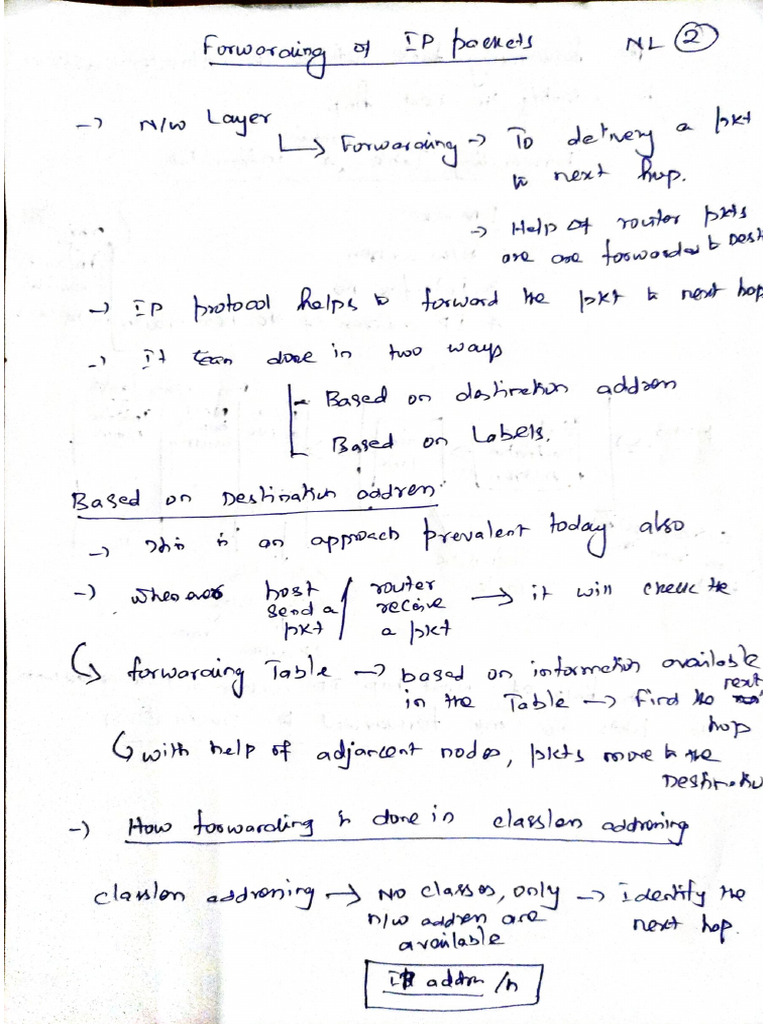 Forwarding of IP packets NL 2
-> N/W Layer
Forwarding -> To delivery a pkt
to next hop.
-> Help of router pkts
are are forwarded to Dest
-> IP protocol helps to forward the pkt to next hop
-> It can done in two ways
Based on destination address
Based on Labels.
Based on Destination address
-> This is an approach prevalent today also
-> whenever host send a pkt / router receive a pkt -> it will check the
forwarding Table -> based on information available
in the Table -> find the next
hop
with help of adjacent nodes, pkts move to the
Destinatio
-> How forwarding is done in classless addressing
classless addressing -> No classes, only -> identify the
n/w address are next hop.
available
IP addrss /n